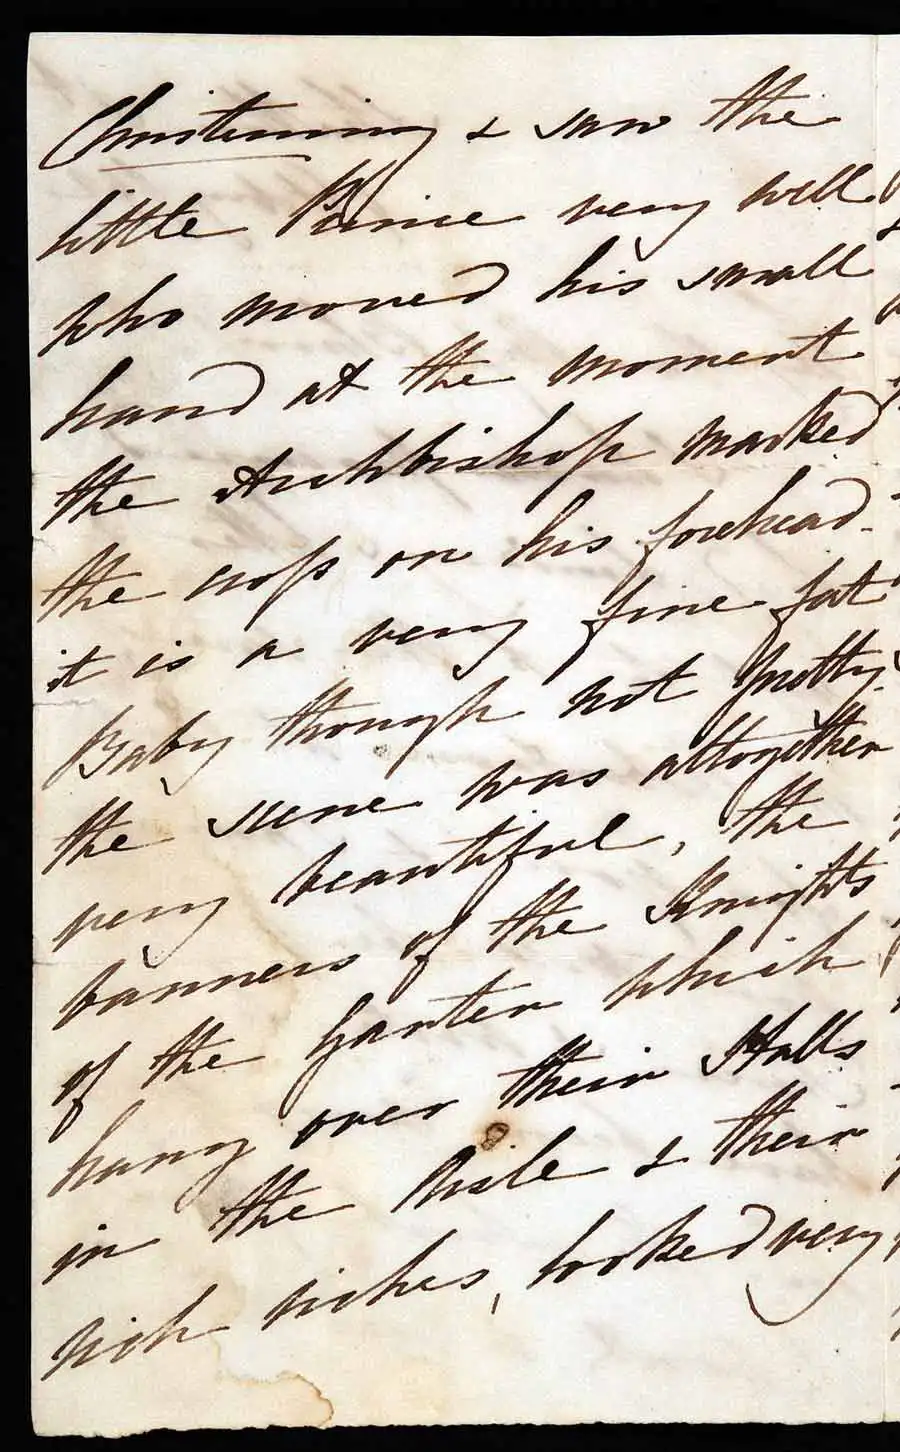 Christening & saw the
little Prince very well
who moved his small
hand at the moment
the Archbishop marked
the cross on his forehead -
it is a very fine fat
Baby though not pretty.
the scene was altogether
very beautiful, the
banners of the Knights
of the Garter which
hang over their Stalls
in the Aisle & their
rich riches, looked very